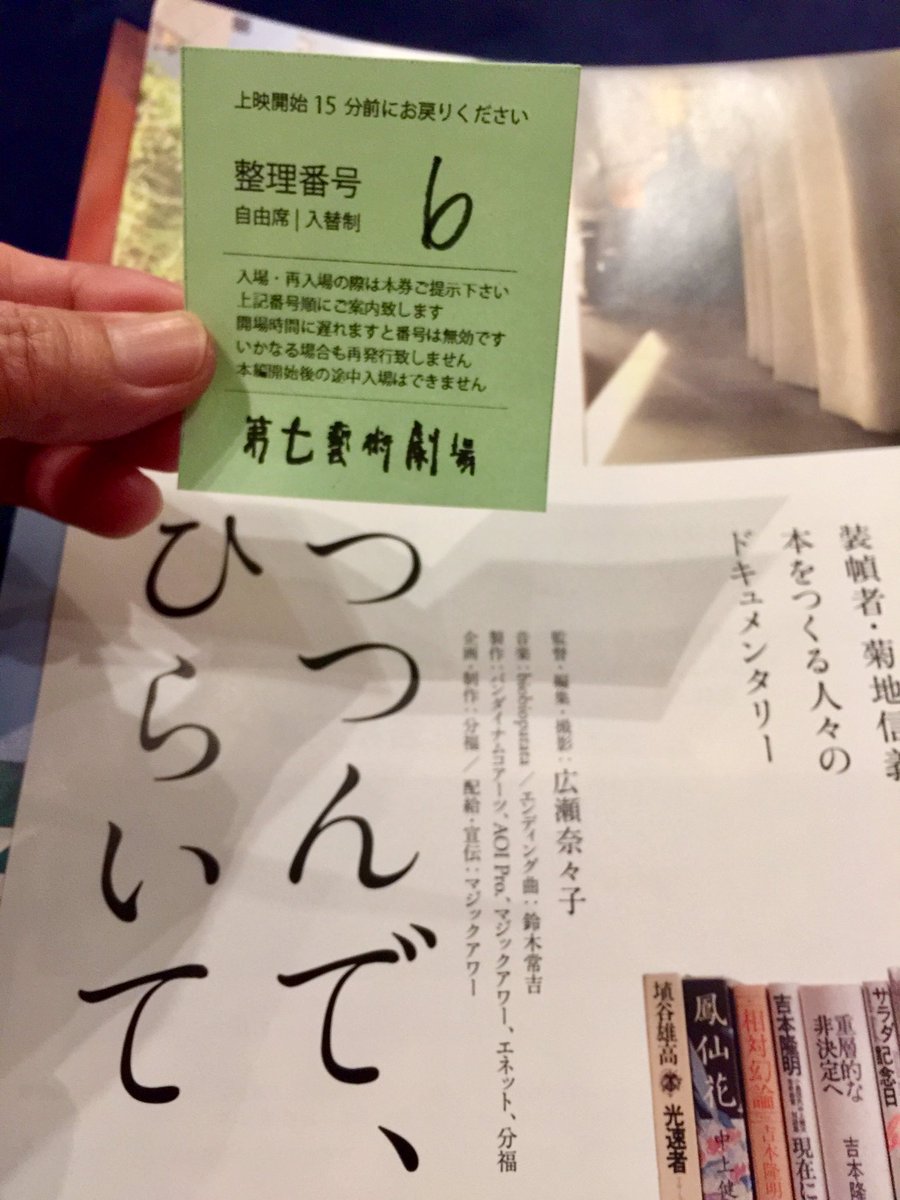 上映開始15分前にお戻りください
整理番号
6
自由席|入替制
入場・再入場の際は本券ご提示下さい
上記番号順にご案内致します
開場時間に遅れますと番号は無効です
いかなる場合も再発行致しません
本編開始後の途中入場はできません
第七藝術劇場
装幀者・菊地信義
本をつくる人々の
ドキュメンタリー
監督・編集・撮影：広瀬奈々子
音楽：biobiopatata／エンディング曲：鈴木常吉
製作：バンダイナムコアーツ、AOI Pro.、マジックアワー、エネット、分福
企画・制作：分福／配給・宣伝：マジックアワー
つつんで、
ひらいて
埴谷雄高 光速者
鳳仙花 中上健
相対幻論 吉本隆明
吉本隆明 現在に
重層的な
非決定へ
吉本隆
サラダ記念日